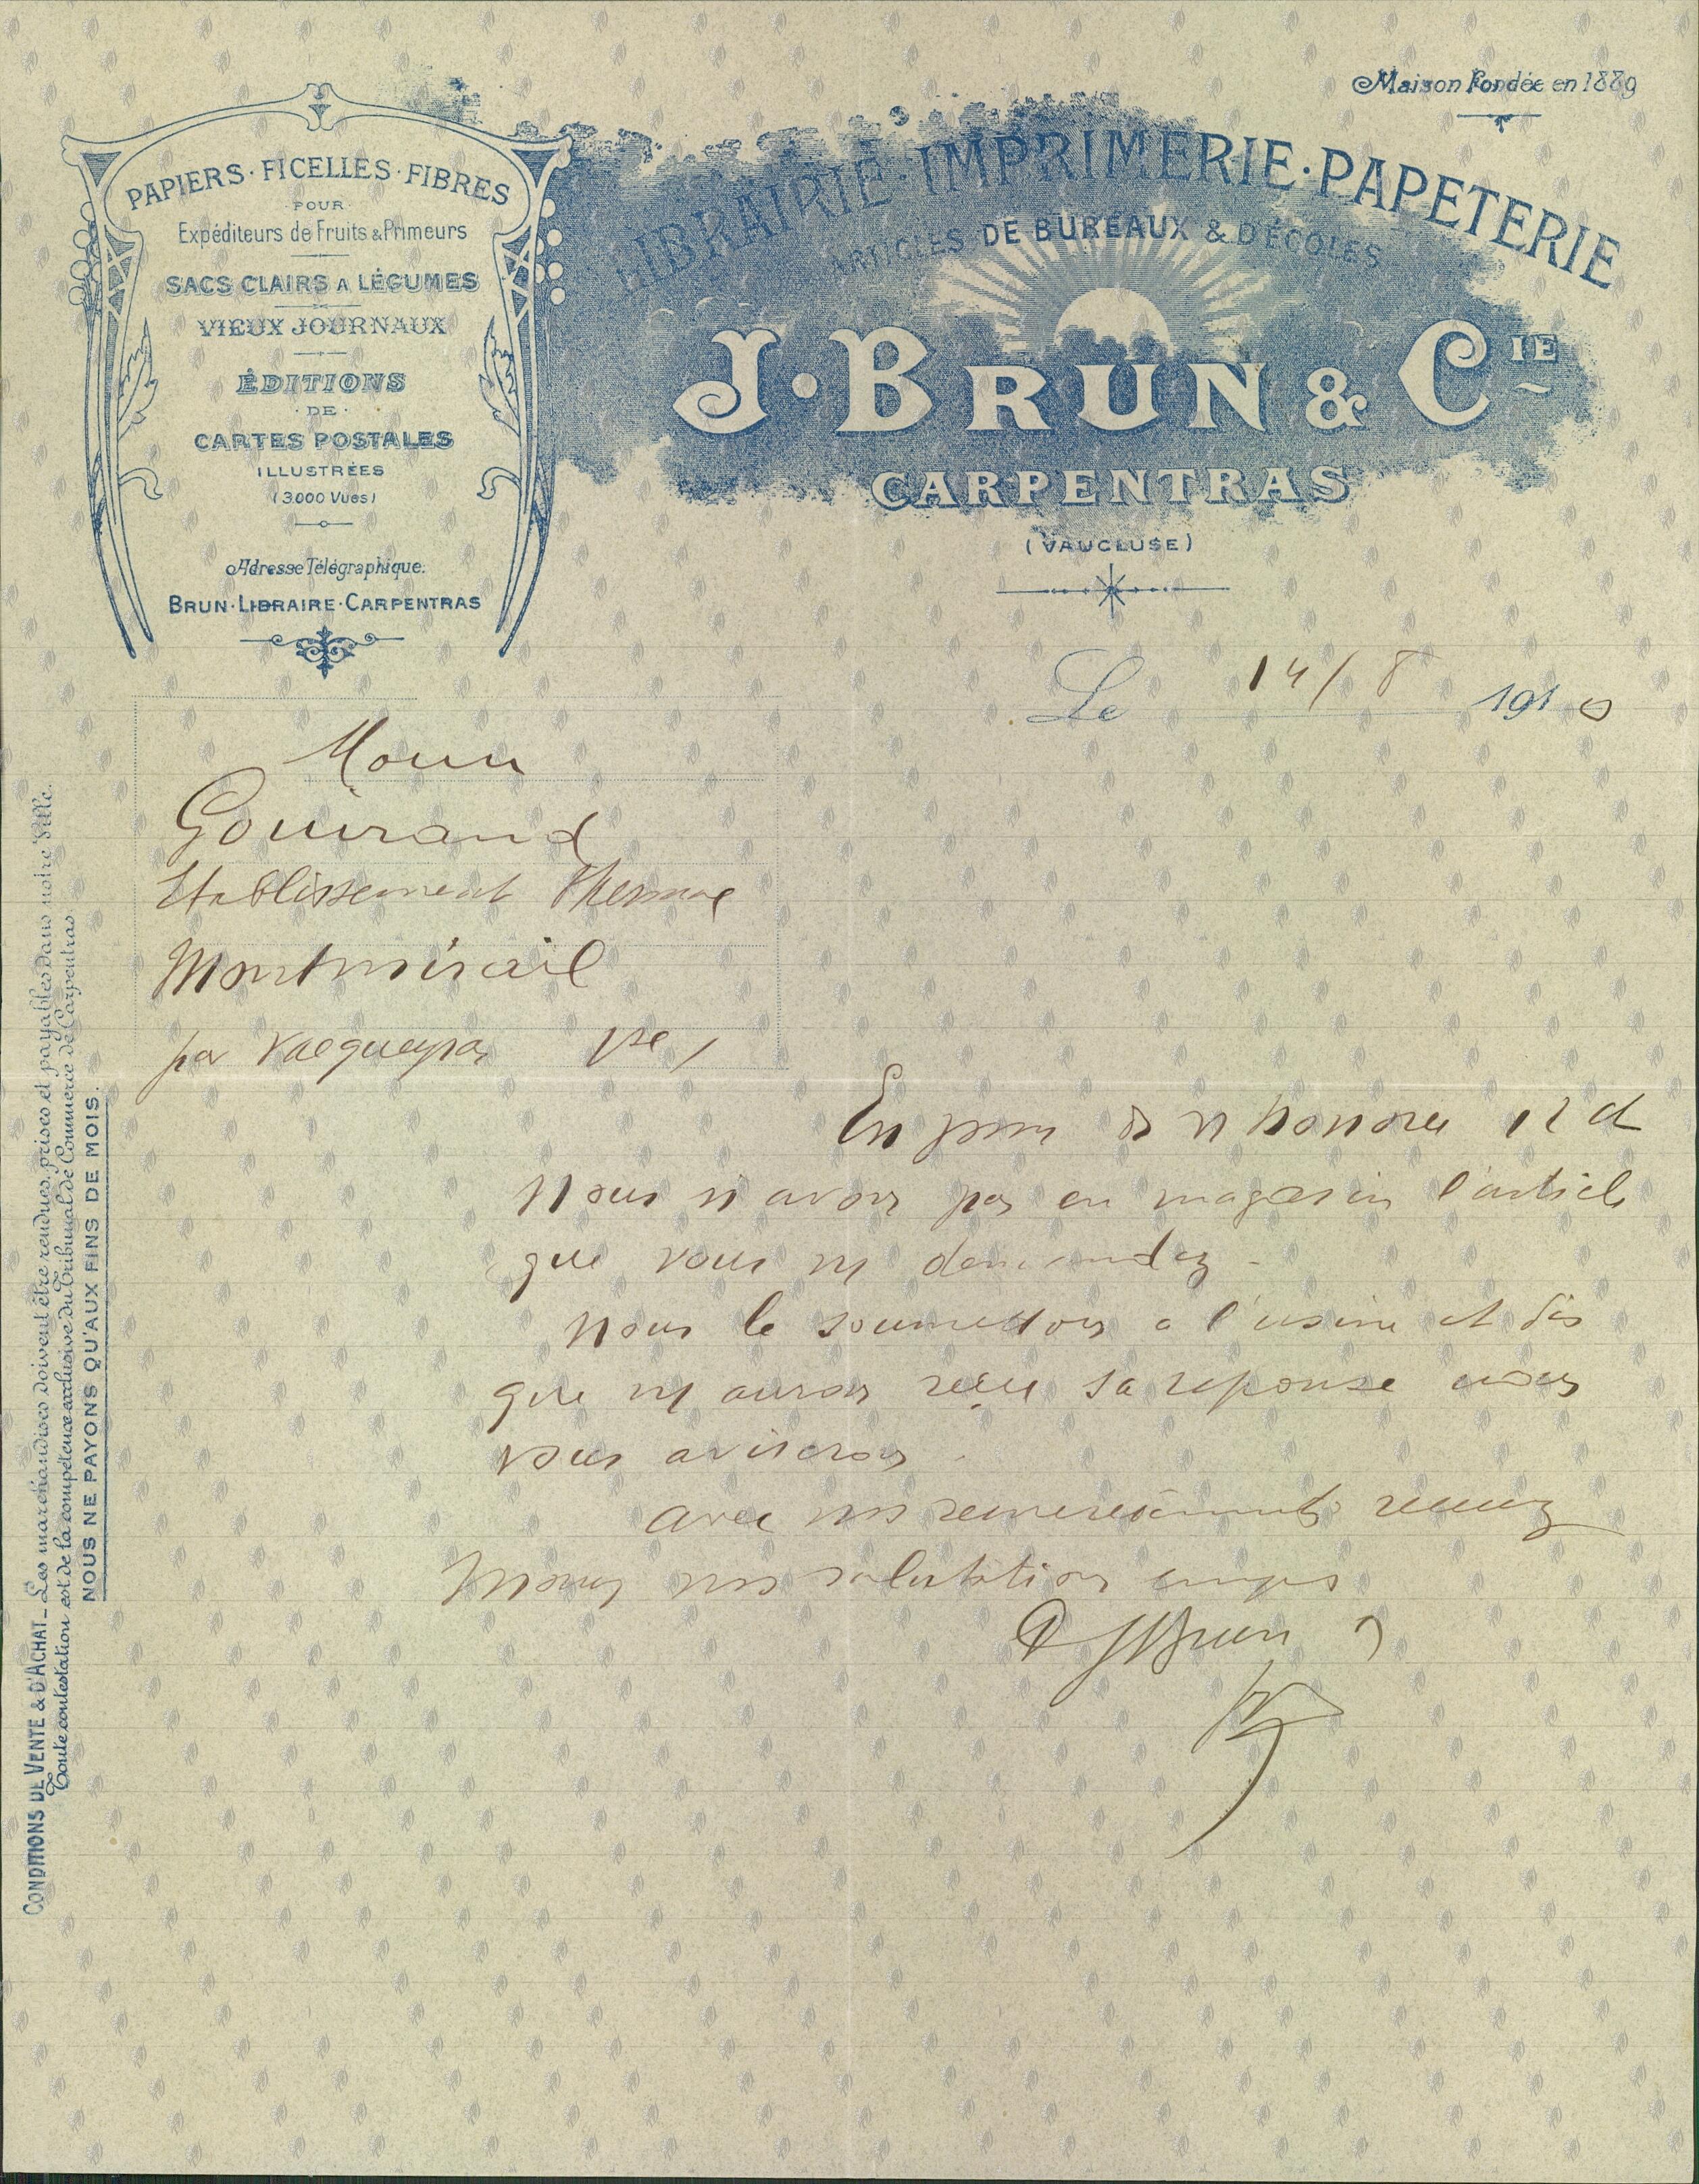 Maison Fondée en 1889
LIBRAIRIE · IMPRIMERIE · PAPETERIE
ARTICLES DE BUREAUX & D'ÉCOLES
J. BRUN & CIE
CARPENTRAS
(VAUCLUSE)
PAPIERS · FICELLES · FIBRES
POUR
Expéditeurs de Fruits & Primeurs
SACS CLAIRS A LÉGUMES
VIEUX JOURNAUX
ÉDITIONS
· DE ·
CARTES POSTALES
ILLUSTRÉES
(3000 Vues)
Adresse Télégraphique:
BRUN · LIBRAIRE · CARPENTRAS
Le 14/8 1910
Gouirand
Etablissement
Montmirail
par Vacqueyras Vse
En honorée 12 ct
Nous n'avons pas en magasin l'article
que vous ns demandez -
Nous le soumettons a l'usine et dès
que ns aurons reçu sa reponse nous
vous aviserons.
avec nos remerciements recevez
nos salutations
JBrun
CONDITIONS DE VENTE & D'ACHAT _ Les marchandises doivent être rendues, prises et payables dans notre Ville.
Toute contestation est de la compétence exclusive du Tribunal de Commerce de Carpentras
NOUS NE PAYONS QU'AUX FINS DE MOIS.